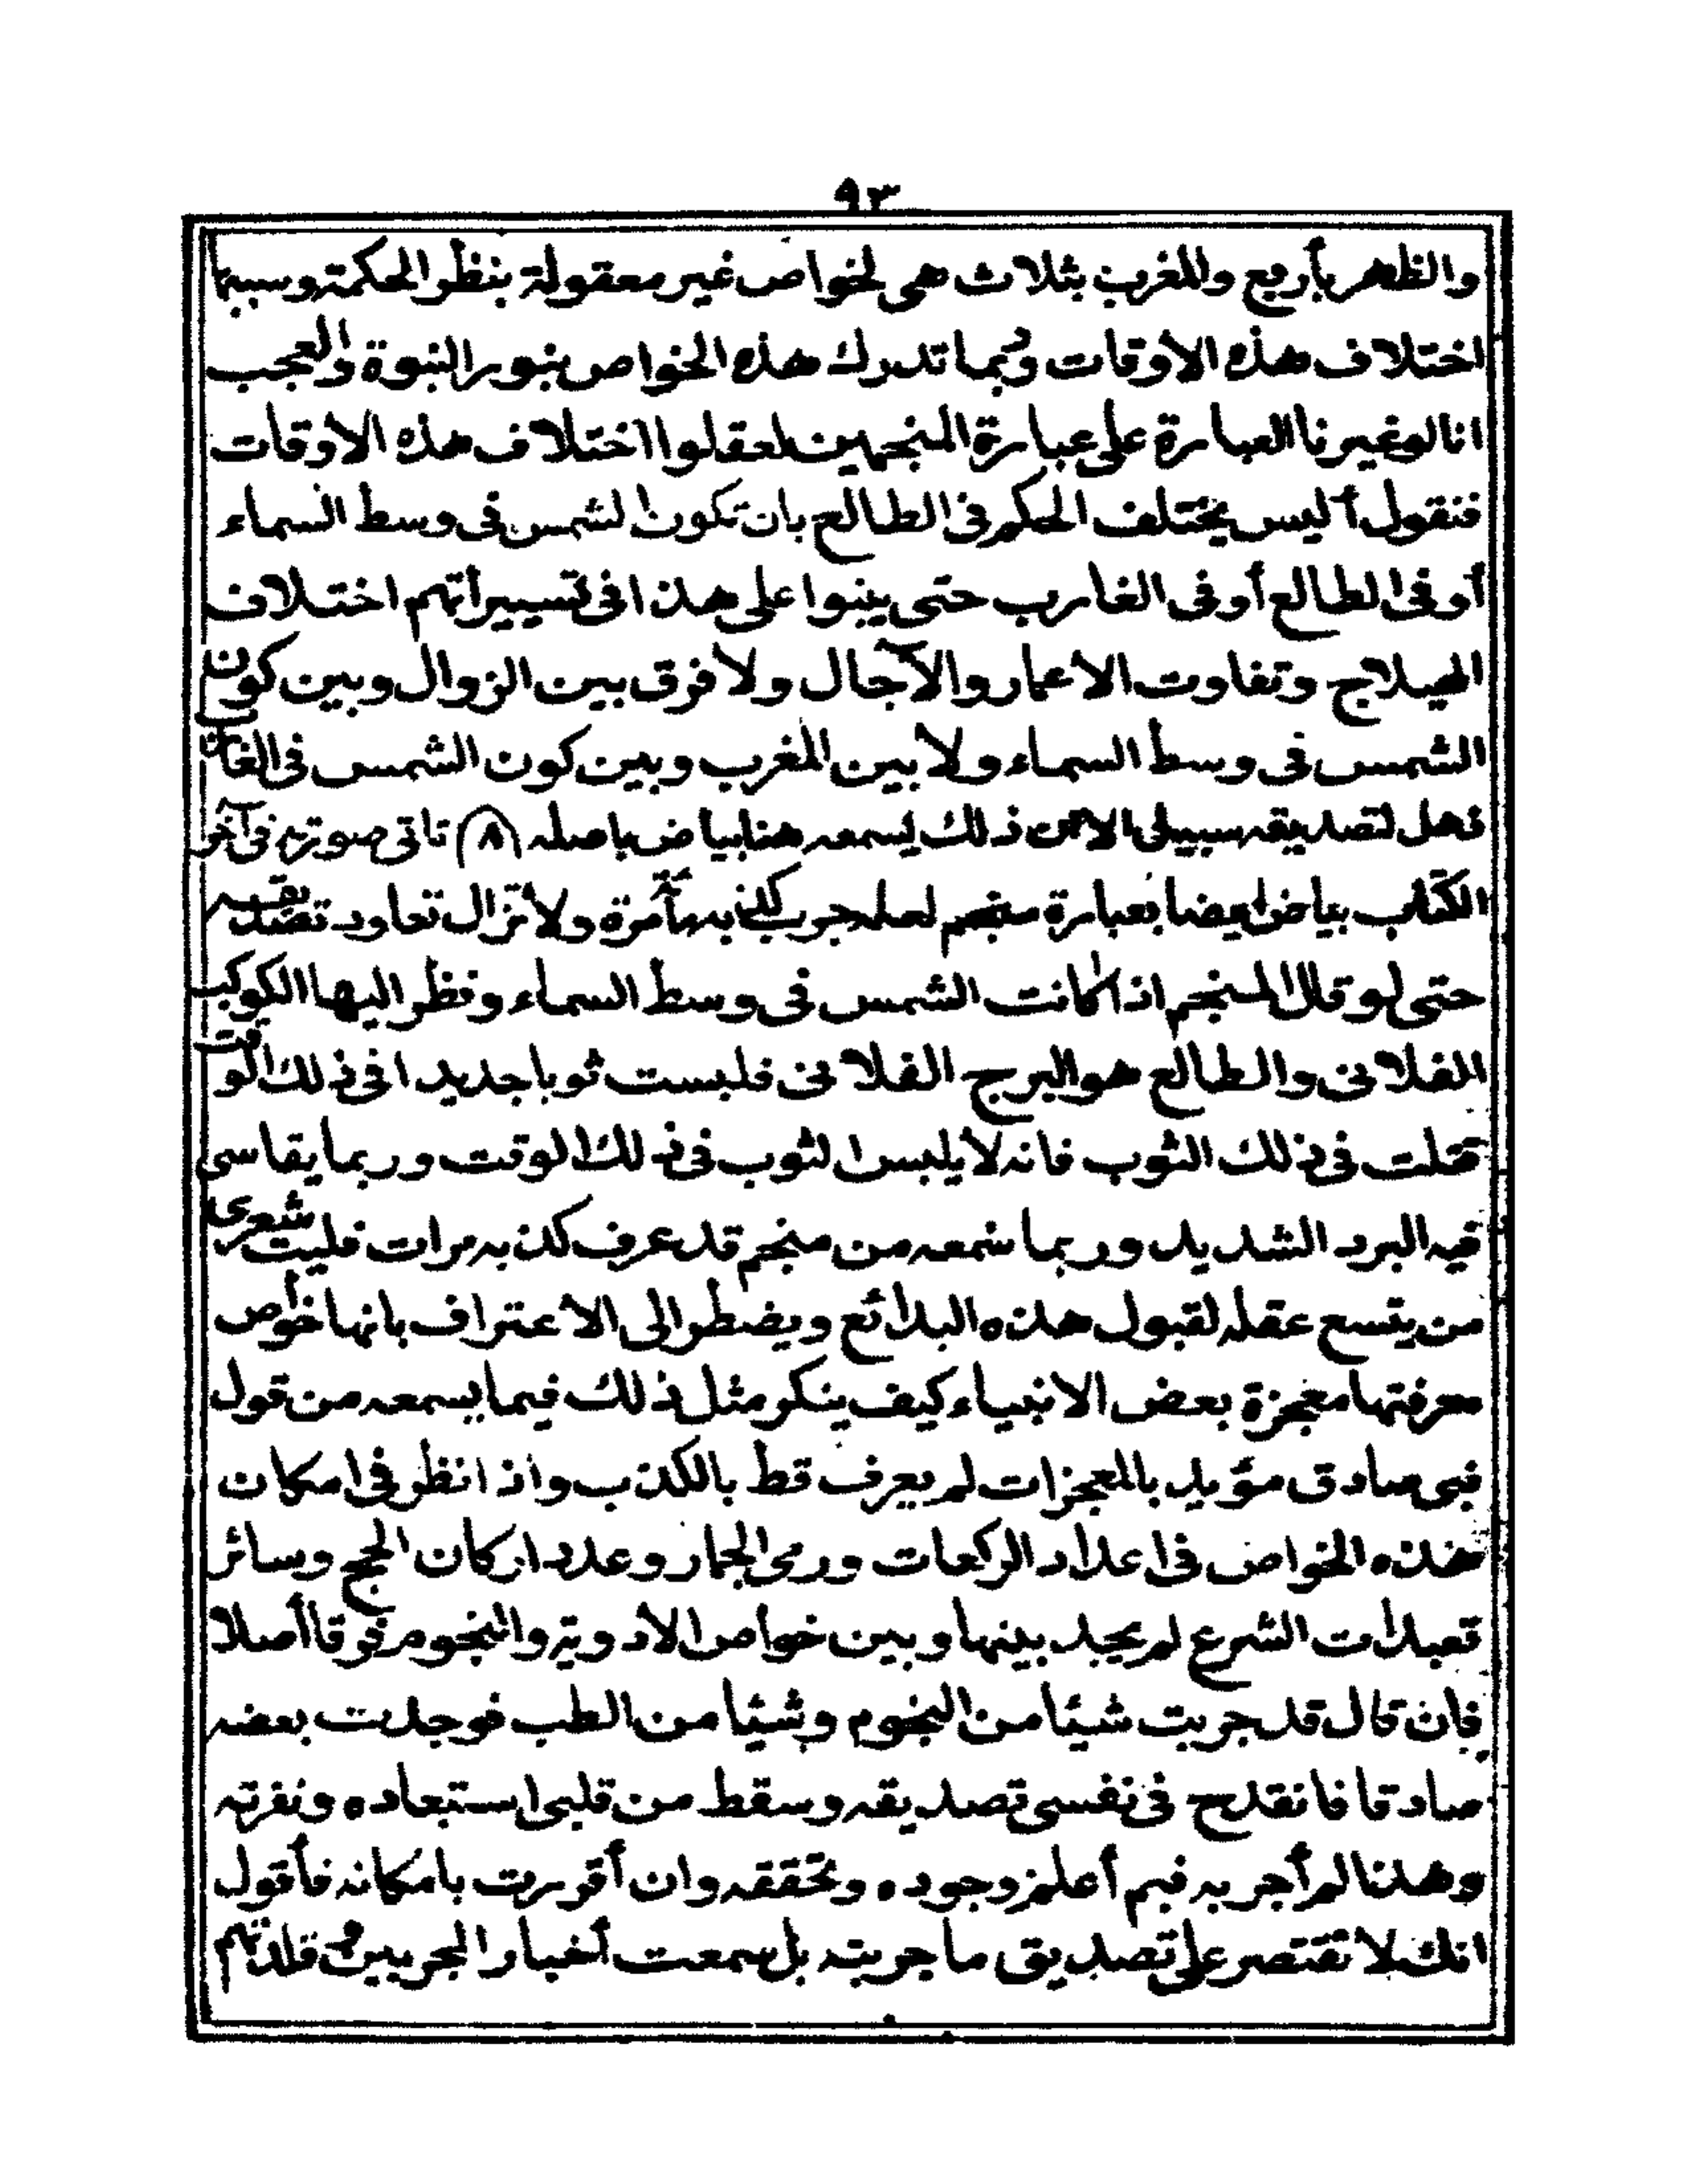 ٩٣
والظهر بأربع والمغرب بثلاث هى لخواص غير معقولة بنظر الحكمة وسببها
اختلاف هذه الأوقات وبما تدرك هذه الخواص بنور النبوة والعجب
انا لو غيرنا العبارة على عبارة المنجمين لعقلوا اختلاف هذه الأوقات
فنقول أليس يختلف الحكم فى الطالع بان تكون الشمس فى وسط السماء
أو فى الطالع أو فى الغارب حتى يبنوا على هذا فى تسييراتهم اختلاف
الهيلاج وتفاوت الاعمار والآجال ولا فرق بين الزوال وبين كون
الشمس فى وسط السماء ولا بين المغرب وبين كون الشمس فى الغارب
فهل لتصديقه سبيل الا ذلك يسمعه هنا بياض باصله (٨) تاتى صورته فى آخر
الكتاب بياض ايضا بعبارة منجم لعله جرب كذبه مرة ولا تزال تعاود تصديقه
حتى لو قال المنجم اذا كانت الشمس فى وسط السماء ونظر اليها الكوكب
الفلانى والطالع هو البرج الفلانى فلبست ثوبا جديدا فى ذلك الوقت
قتلت فى ذلك الثوب فانه لا يلبس الثوب فى ذلك الوقت وربما يقاسى
فيه البرد الشديد وربما سمعه من منجم قد عرف كذبه مرات فليت شعرى
من يتسع عقله لقبول هذه البدائع ويضطر الى الاعتراف بانها خواص
معرفتها معجزة بعض الانبياء كيف ينكر مثل ذلك فيما يسمعه من قول
نبى صادق مؤيد بالمعجزات لم يعرف قط بالكذب واذا نظر فى امكان
هذه الخواص فى اعداد الركعات ورمى الجمار وعدد اركان الحج وسائر
تعبدات الشرع لم يجد بينها وبين خواص الادوية والنجوم فرقا أصلا
فان قال قد جربت شيئا من النجوم وشيئا من الطب فوجدت بعضه
صادقا فانقدح فى نفسى تصديقه وسقط من قلبى استبعاده ونفرته
وهذا لم أجربه فبم أعلم وجوده وتحققه وان أقررت بامكانه فأقول
انك لا تقتصر على تصديق ما جربته بل سمعت أخبار المجربين وقلدتهم